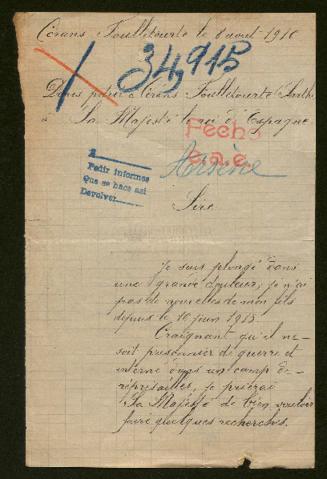 Cérans Foulletourte le 8 aout 1916
34,915
Denis père à Cérans Foulletourte Sarthe
à Sa Majesté le roi d'Espagne
Fecho
e.a.e.
Arsène
1
Pedir informes
Que se hace así
Devolver
Sire
Je suis plongé dans
une grande douleur, je n'ai
pas de nouvelles de mon fils
depuis le 10 juin 1915
Craignant qu'il ne
soit prisonnier de guerre et
interné dans un camp de
représailles, je prierai
Sa Majesté de bien vouloir
faire quelques recherches.